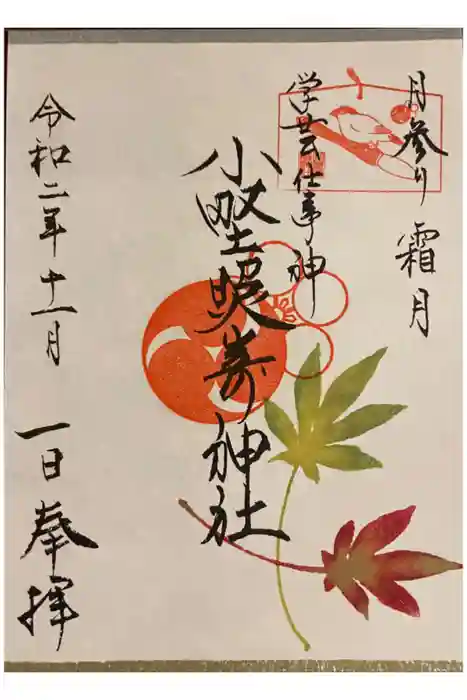 月参り 霜月
学芸仕事神
小野照崎神社
令和二年十一月
一日奉拝